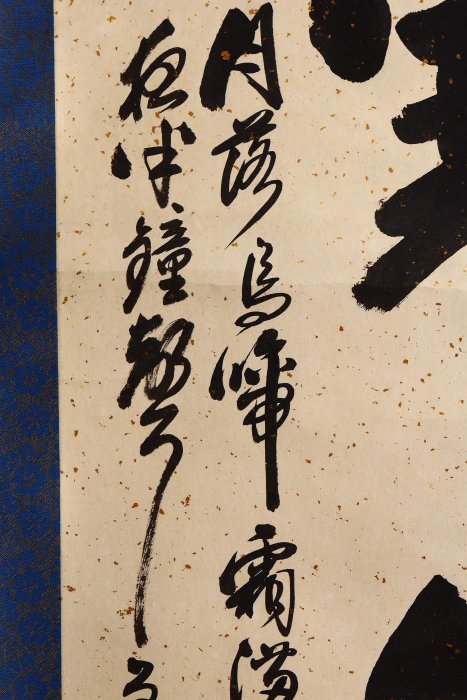 月落烏啼霜滿
夜半鐘聲